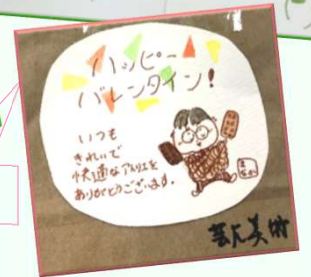 ハッピー
バレンタイン!
いつも
きれいで
快適なアトリエを
ありがとうございます。
芸大美術